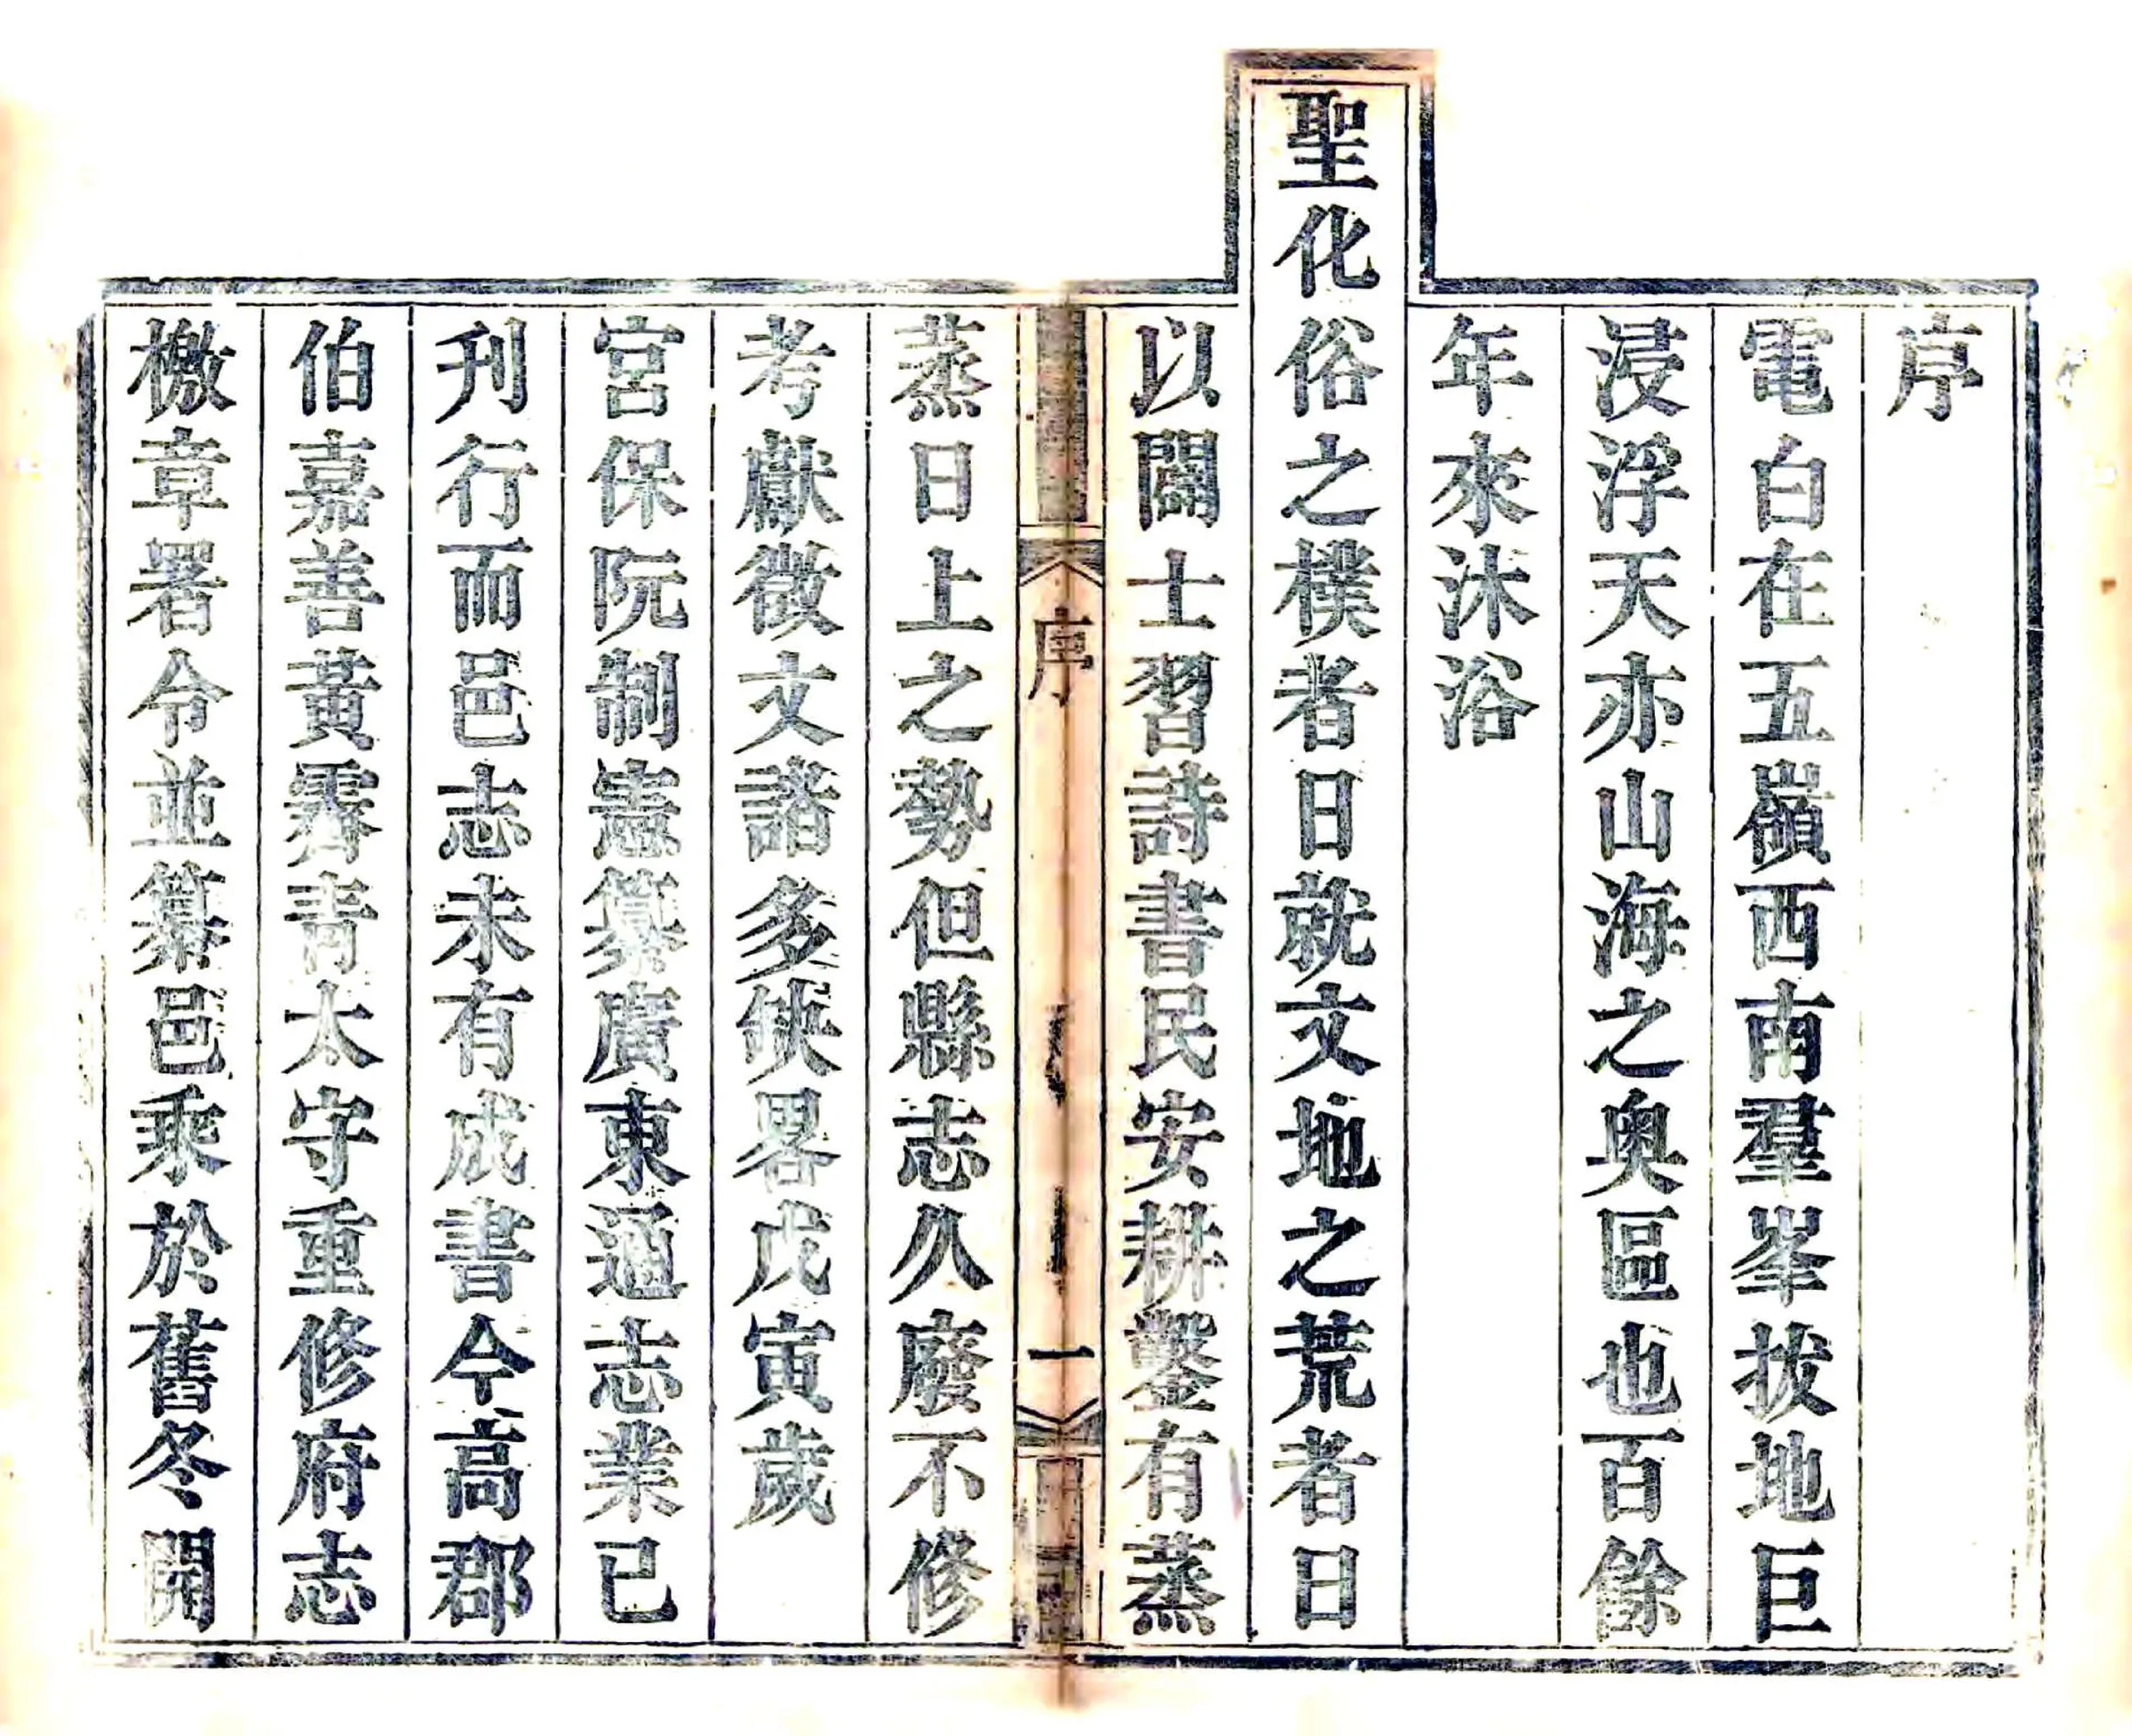 序
電白在五嶺西南羣峯拔地巨
浸浮天亦山海之奥區也百餘
年來沐浴
聖化俗之樸者日就文地之荒者日
以闢士習詩書民安耕鑿有蒸
序 一
蒸日上之勢但縣志久廢不修
考獻徵文諸多缺畧戊寅歲
宮保阮制憲纂廣東通志業已
刋行而邑志未有成書今高郡
伯嘉善黃霽青太守重修府志
檄章署令並纂邑乘於舊冬開